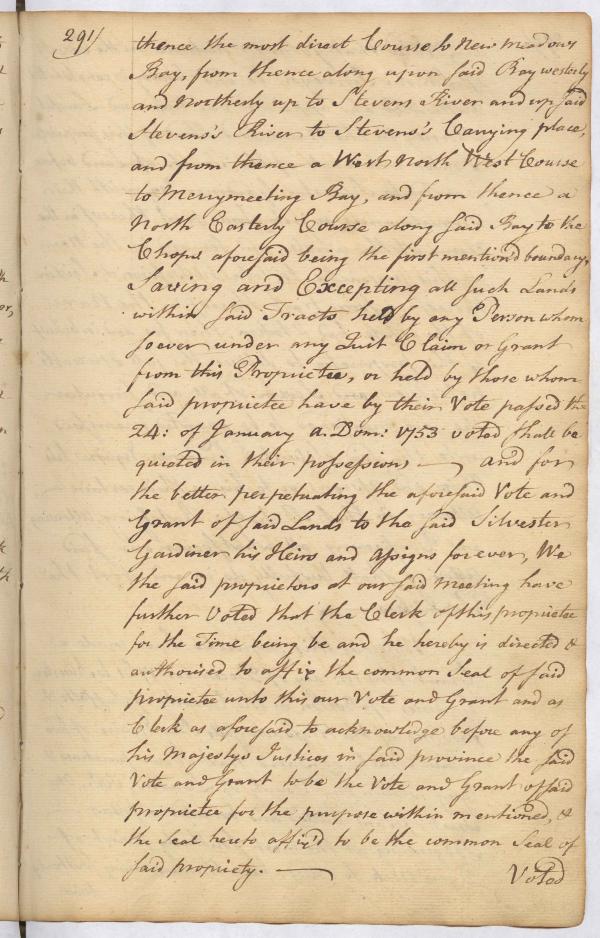 291/
thence the most direct Course to New Meadows
Bay, from thence along upon said Bay westerly
and Northerly up to Stevens River and up said
Stevens's River to Stevens's Carrying place,
and from thence a West North West Course
to Merrymeeting Bay, and from thence a
North Easterly Course along said Bay to the
Chops aforesaid being the first mention'd boundary,
Saving and Excepting all such Lands
within said Tracts held by any Person whom
soever under any Quit Claim or Grant
from this Proprietee, or held by those whom
said proprietee have by their Vote passed the
24: of January a. Dom: 1753 voted shall be
quieted in their possessions — and for
the better perpetuating the aforesaid Vote and
Grant of said Lands to the said Silvester
Gardiner his Heirs and Assigns forever, We
the said proprietors at our said Meeting have
further Voted that the Clerk of this proprietee
for the Time being be and he hereby is directed &
authorised to affix the common Seal of said
proprietee unto this our Vote and Grant and as
Clerk as aforesaid, to acknowledge before any of
his Majestys Justices in said province the said
Vote and Grant to be the Vote and Grant of said
proprietee for the purpose within mentioned, &
the Seal hereto affix'd to be the common Seal of
said propriety. —
Voted